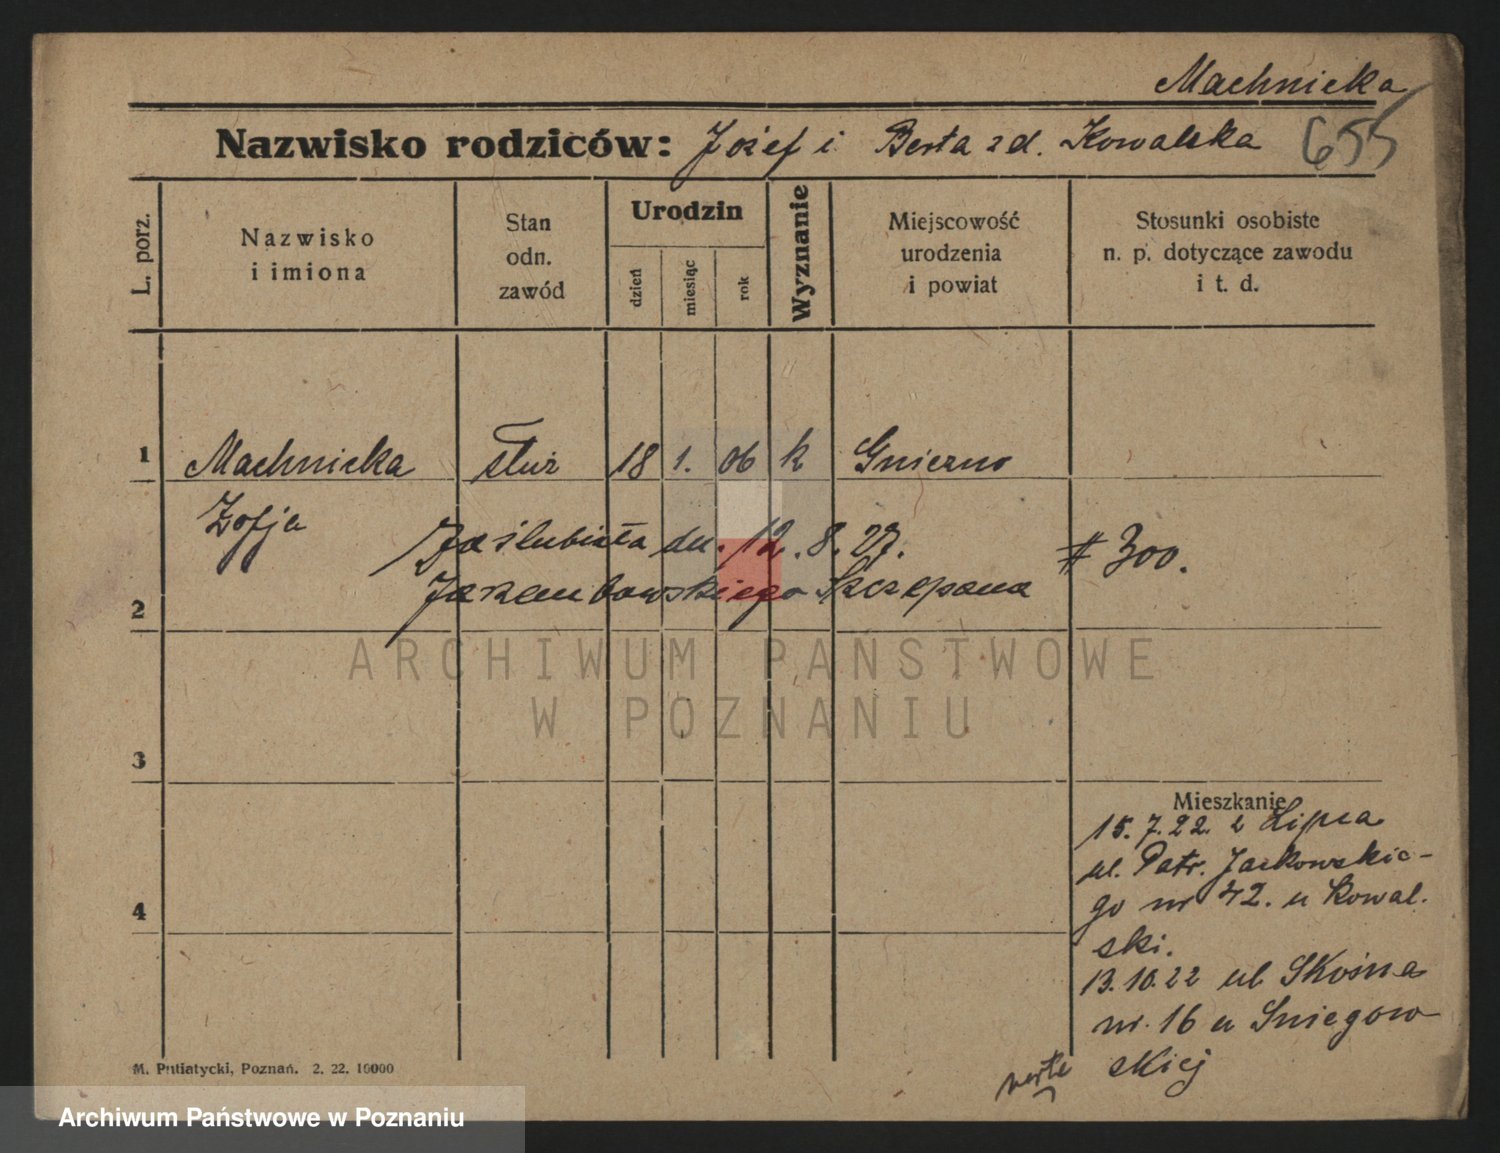 Machnicka
Nazwisko rodziców: Józef i Berta zd. Kowalska 655
L. porz.
Nazwisko
i imiona
Stan
odn.
zawód
Urodzin
dzień
miesiąc
rok
Wyznanie
Miejscowość
urodzenia
i powiat
Stosunki osobiste
n. p. dotyczące zawodu
i t. d.
1 Machnicka służ 18 1. 06 k Gniezno
Zofja
Zaślubiła dn. 12.8.27. # 300.
2 Szczepana
3
Mieszkanie
15.7.22. z Lipca
ul. Patr. Jackowskie-
go nr 42. u Kowal.
4
ski.
13.10.22 ul Skośna
nr. 16 u Sniegow
skiej
verte
M. Putiatycki, Poznań. 2. 22. 10000
ARCHIWUM PAŃSTWOWE
W POZNANIU
Archiwum Państwowe w Poznaniu